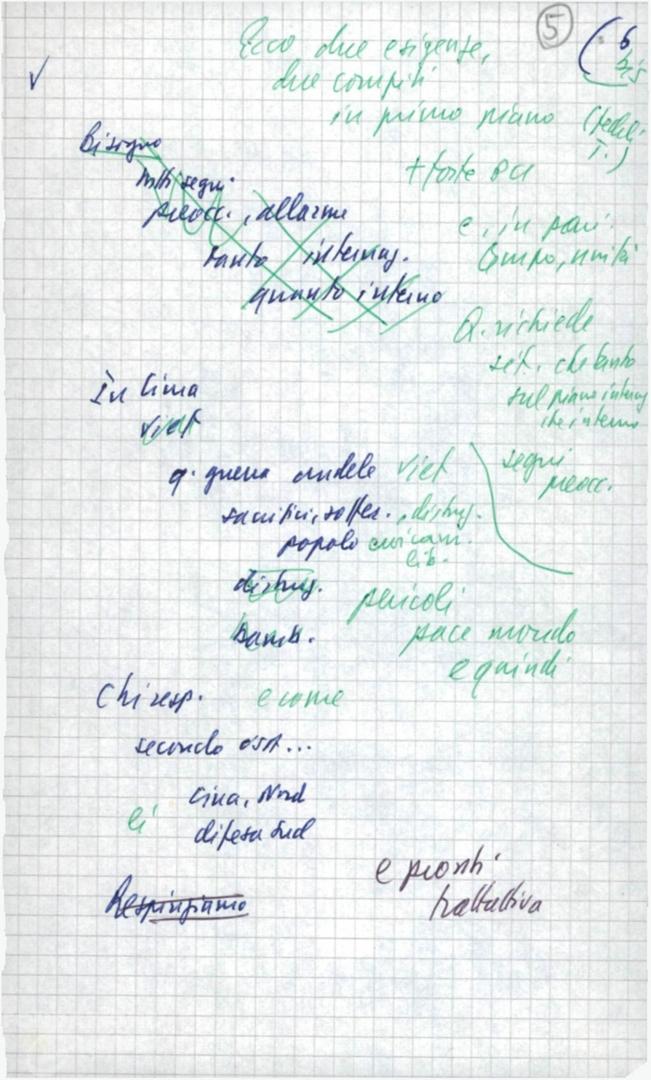 5
( 6
bis
Ecco due esigenze,
due compiti
in primo piano (fedeli
T.)
√
Bisogno
+ forte PCI
Molti segni
preocc., allarme
e, in pari
tempo, unità
tanto internaz.
quanto interno
Q. richiede
sit. che tanto
sul piano internaz
che interno
In cima
Viet
segni
preocc.
q. guerra crudele Viet
sacrifici, soffer., distrug.
popolo
lib.
distrug.
pericoli
bamb.
pace mondo
e quindi
Chi resp. e come
secondo
Cina, Nord
difesa Sud
e pronti
trattativa
Respingiamo